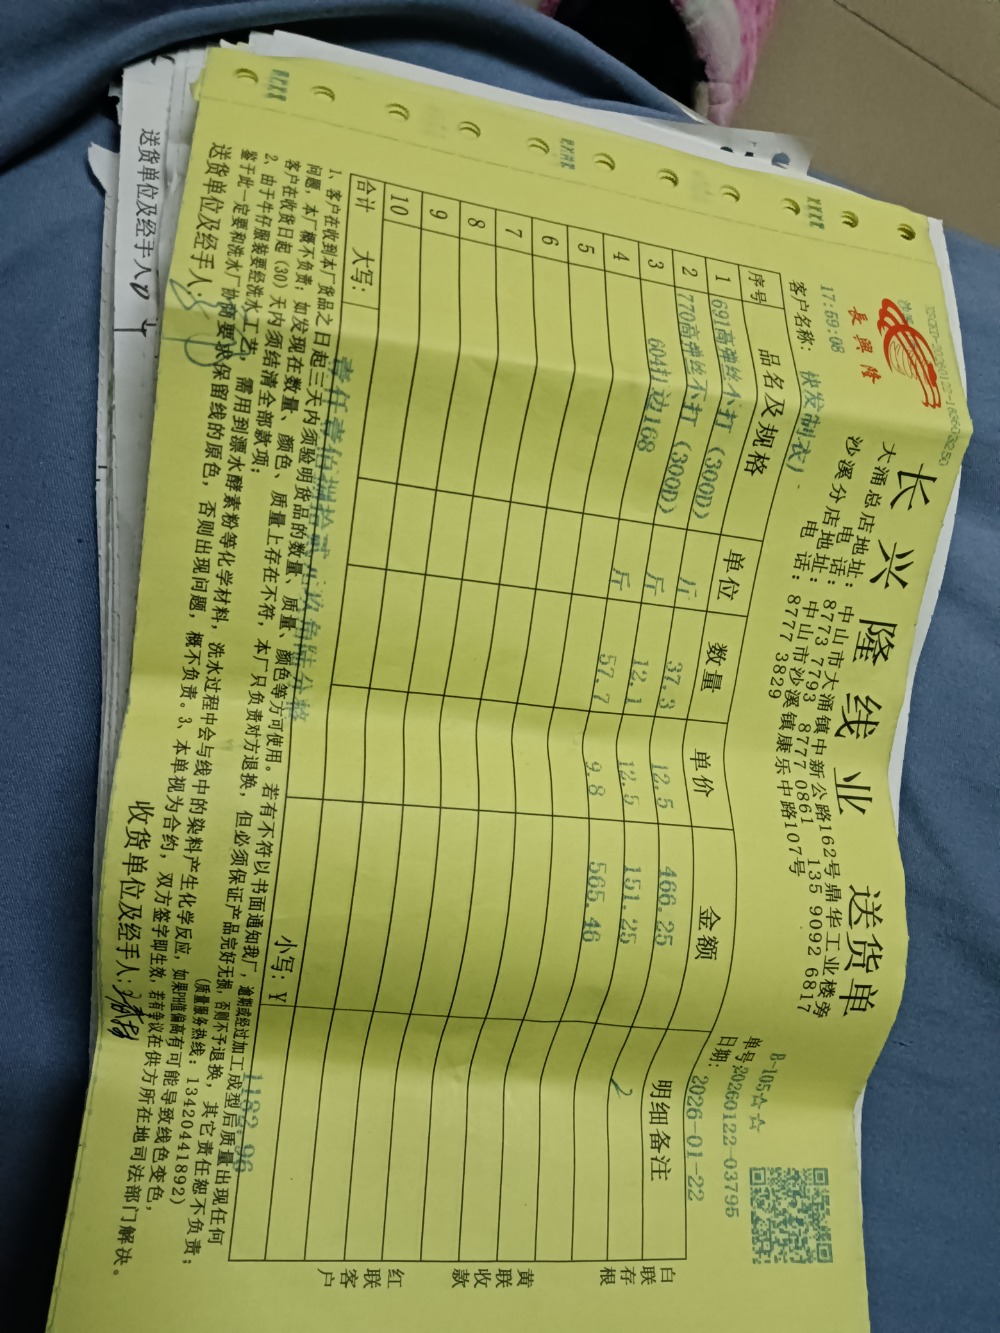 長興隆
长兴隆线业 送货单
大涌总店地址：中山市大涌镇中新公路162号鼎华工业楼旁
电话：8773 7793 8777 0861 135 9092 6817
沙溪分店地址：中山市沙溪镇康乐中路107号
电话：8777 3829
B-105☆☆
单号:20260122-03795
17:59:08
日期：2026-01-22
客户名称：快发制衣)
序号 品名及规格 单位 数量 单价 金额 明细备注
1 691高弹丝不打（300D） 斤 37.3 12.5 466.25
2 770高弹丝不打（300D） 斤 12.1 12.5 151.25
3 604打边168 斤 57.7 9.8 565.46
4
5
6
7
8
9
10
合计 大写：壹仟壹佰捌拾贰元玖角陆分整 小写：¥ 1182.96
1、客户在收到本厂货品之日起三天内须验明货品的数量、质量、颜色等方可使用。若有不符以书面通知我厂，逾期或经过加工成型后质量出现任何
问题，本厂概不负责；如发现在数量、颜色、质量上存在不符，本厂只负责对方退换，但必须保证产品完好无损，否则不予退换，其它责任恕不负责；
客户在收货日起（30）天内须结清全部款项；
(质量服务热线：13420441892)
2、由于牛仔服装要经洗水工艺，需用到漂水酵素粉等化学材料，洗水过程中会与线中的染料产生化学反应，如果PH值偏高有可能导致线色变色，
鉴于此一定要和洗水厂协商要求保留线的原色，否则出现问题，概不负责。3、本单视为合约，双方签字即生效，若有争议在供方所在地司法部门解决。
送货单位及经手人：
收货单位及经手人：
白联存根
黄联收款
红联客户
送货单位及经手人